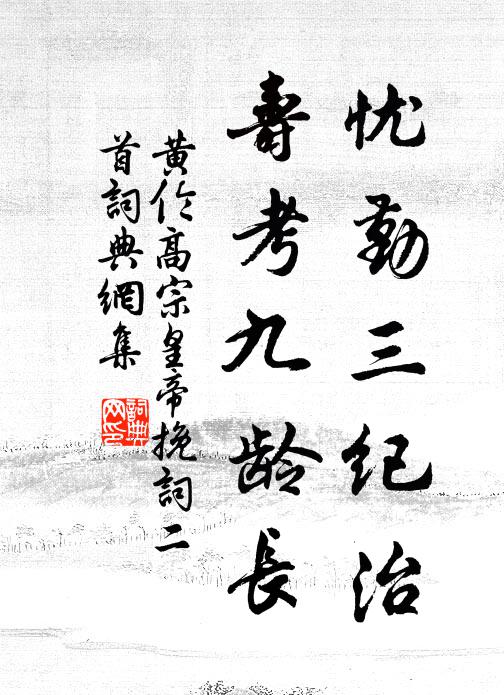 忧勤三纪治
壽考九龄長
黄伦高宗皇帝挽詞二
首詞典網集
詞典
网印